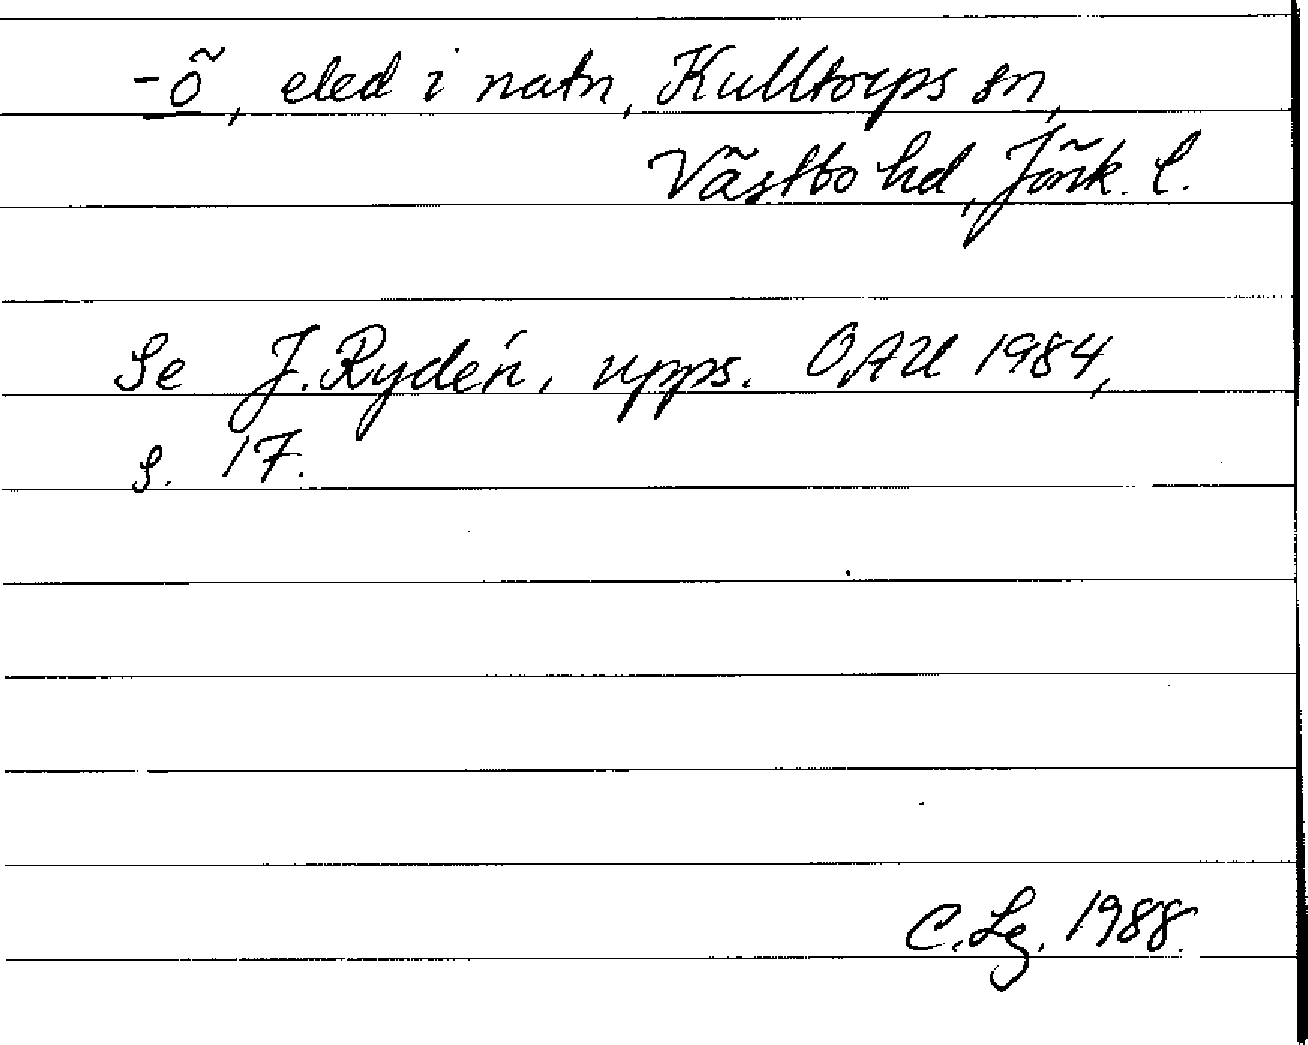 -ö, eled i natn, Kulltorps sn,
Västbo hd, Jönk. l.
Se J. Rydén, upps. OAU 1984,
s. 17.
C. Lg. 1988.